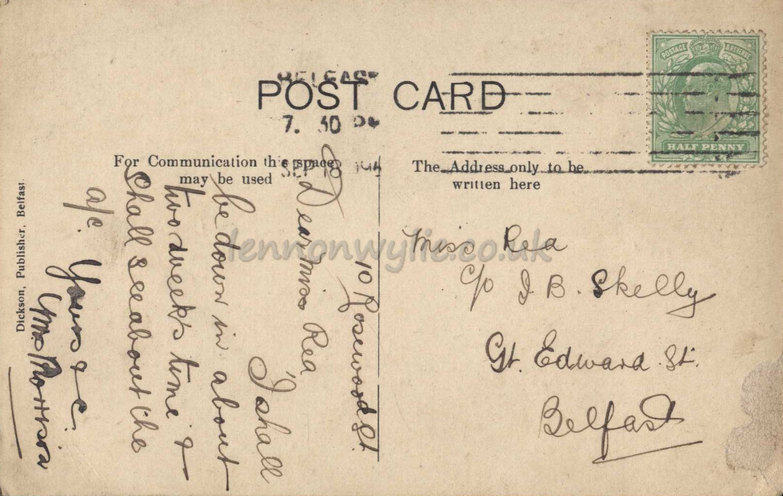 BELFAST
POST CARD
7. 30 PM
SEP 18
POSTAGE
HALF PENNY
For Communication this space
may be used
The Address only to be
written here
10 Rosewood St.
Dear Miss Rea
I shall
be down in about
two weeks time &
shall see about the
a/c.
Yours &c.
Mrs Morrison
Miss Rea
c/o J. B. Skelly
Gt. Edward. St.
Belfast
Dickson, Publisher, Belfast.
lennonwylie.co.uk